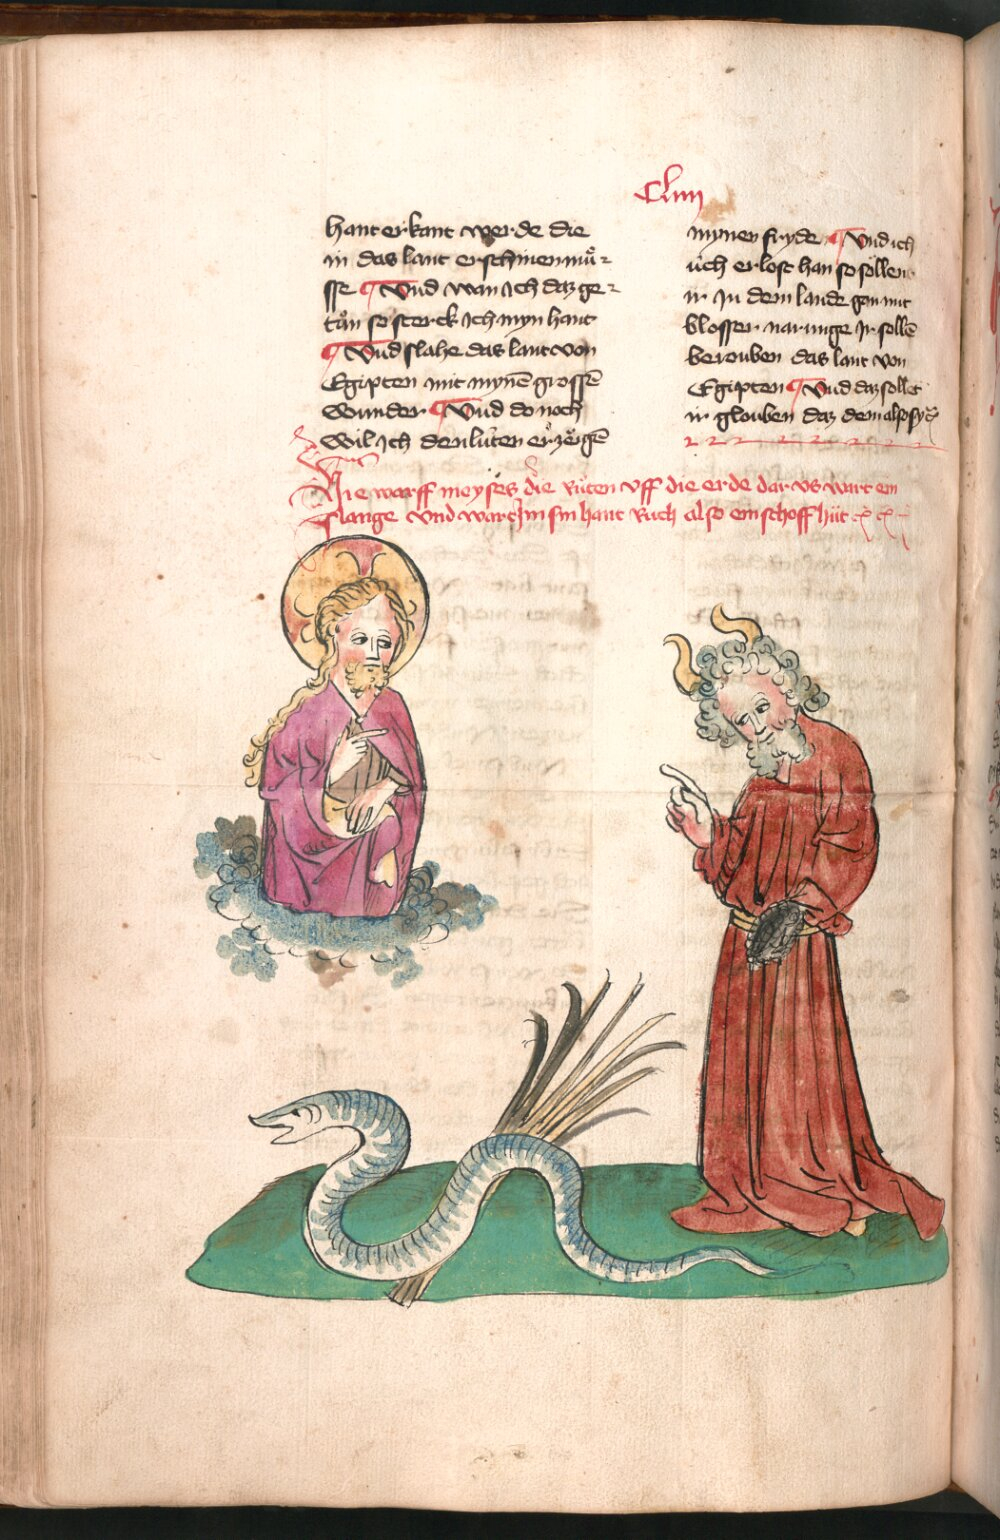 Cliiij
hant erkant werde die
in das lant erschinen mů-
sse Vnd wan ich daz ge-
tůn so sterck ich myn hant
Vnd slahe das lant von
Egipten mit mynē grossē
wunder Vnd do noch
wil ich den lúten erzoͤigē
mynen fryde Vnd ich
úch erlost han so soͤllen
ir in dem lande gan mit
blosser narunge ir soͤllē
berouben das lant von
Egipten Vnd daz sollēt
ir glouben daz dem also sy
Hie warff moyses die růten vff die erde dar vs wart ein
slange vnd wart im sin hant ruch also ein schoff hút